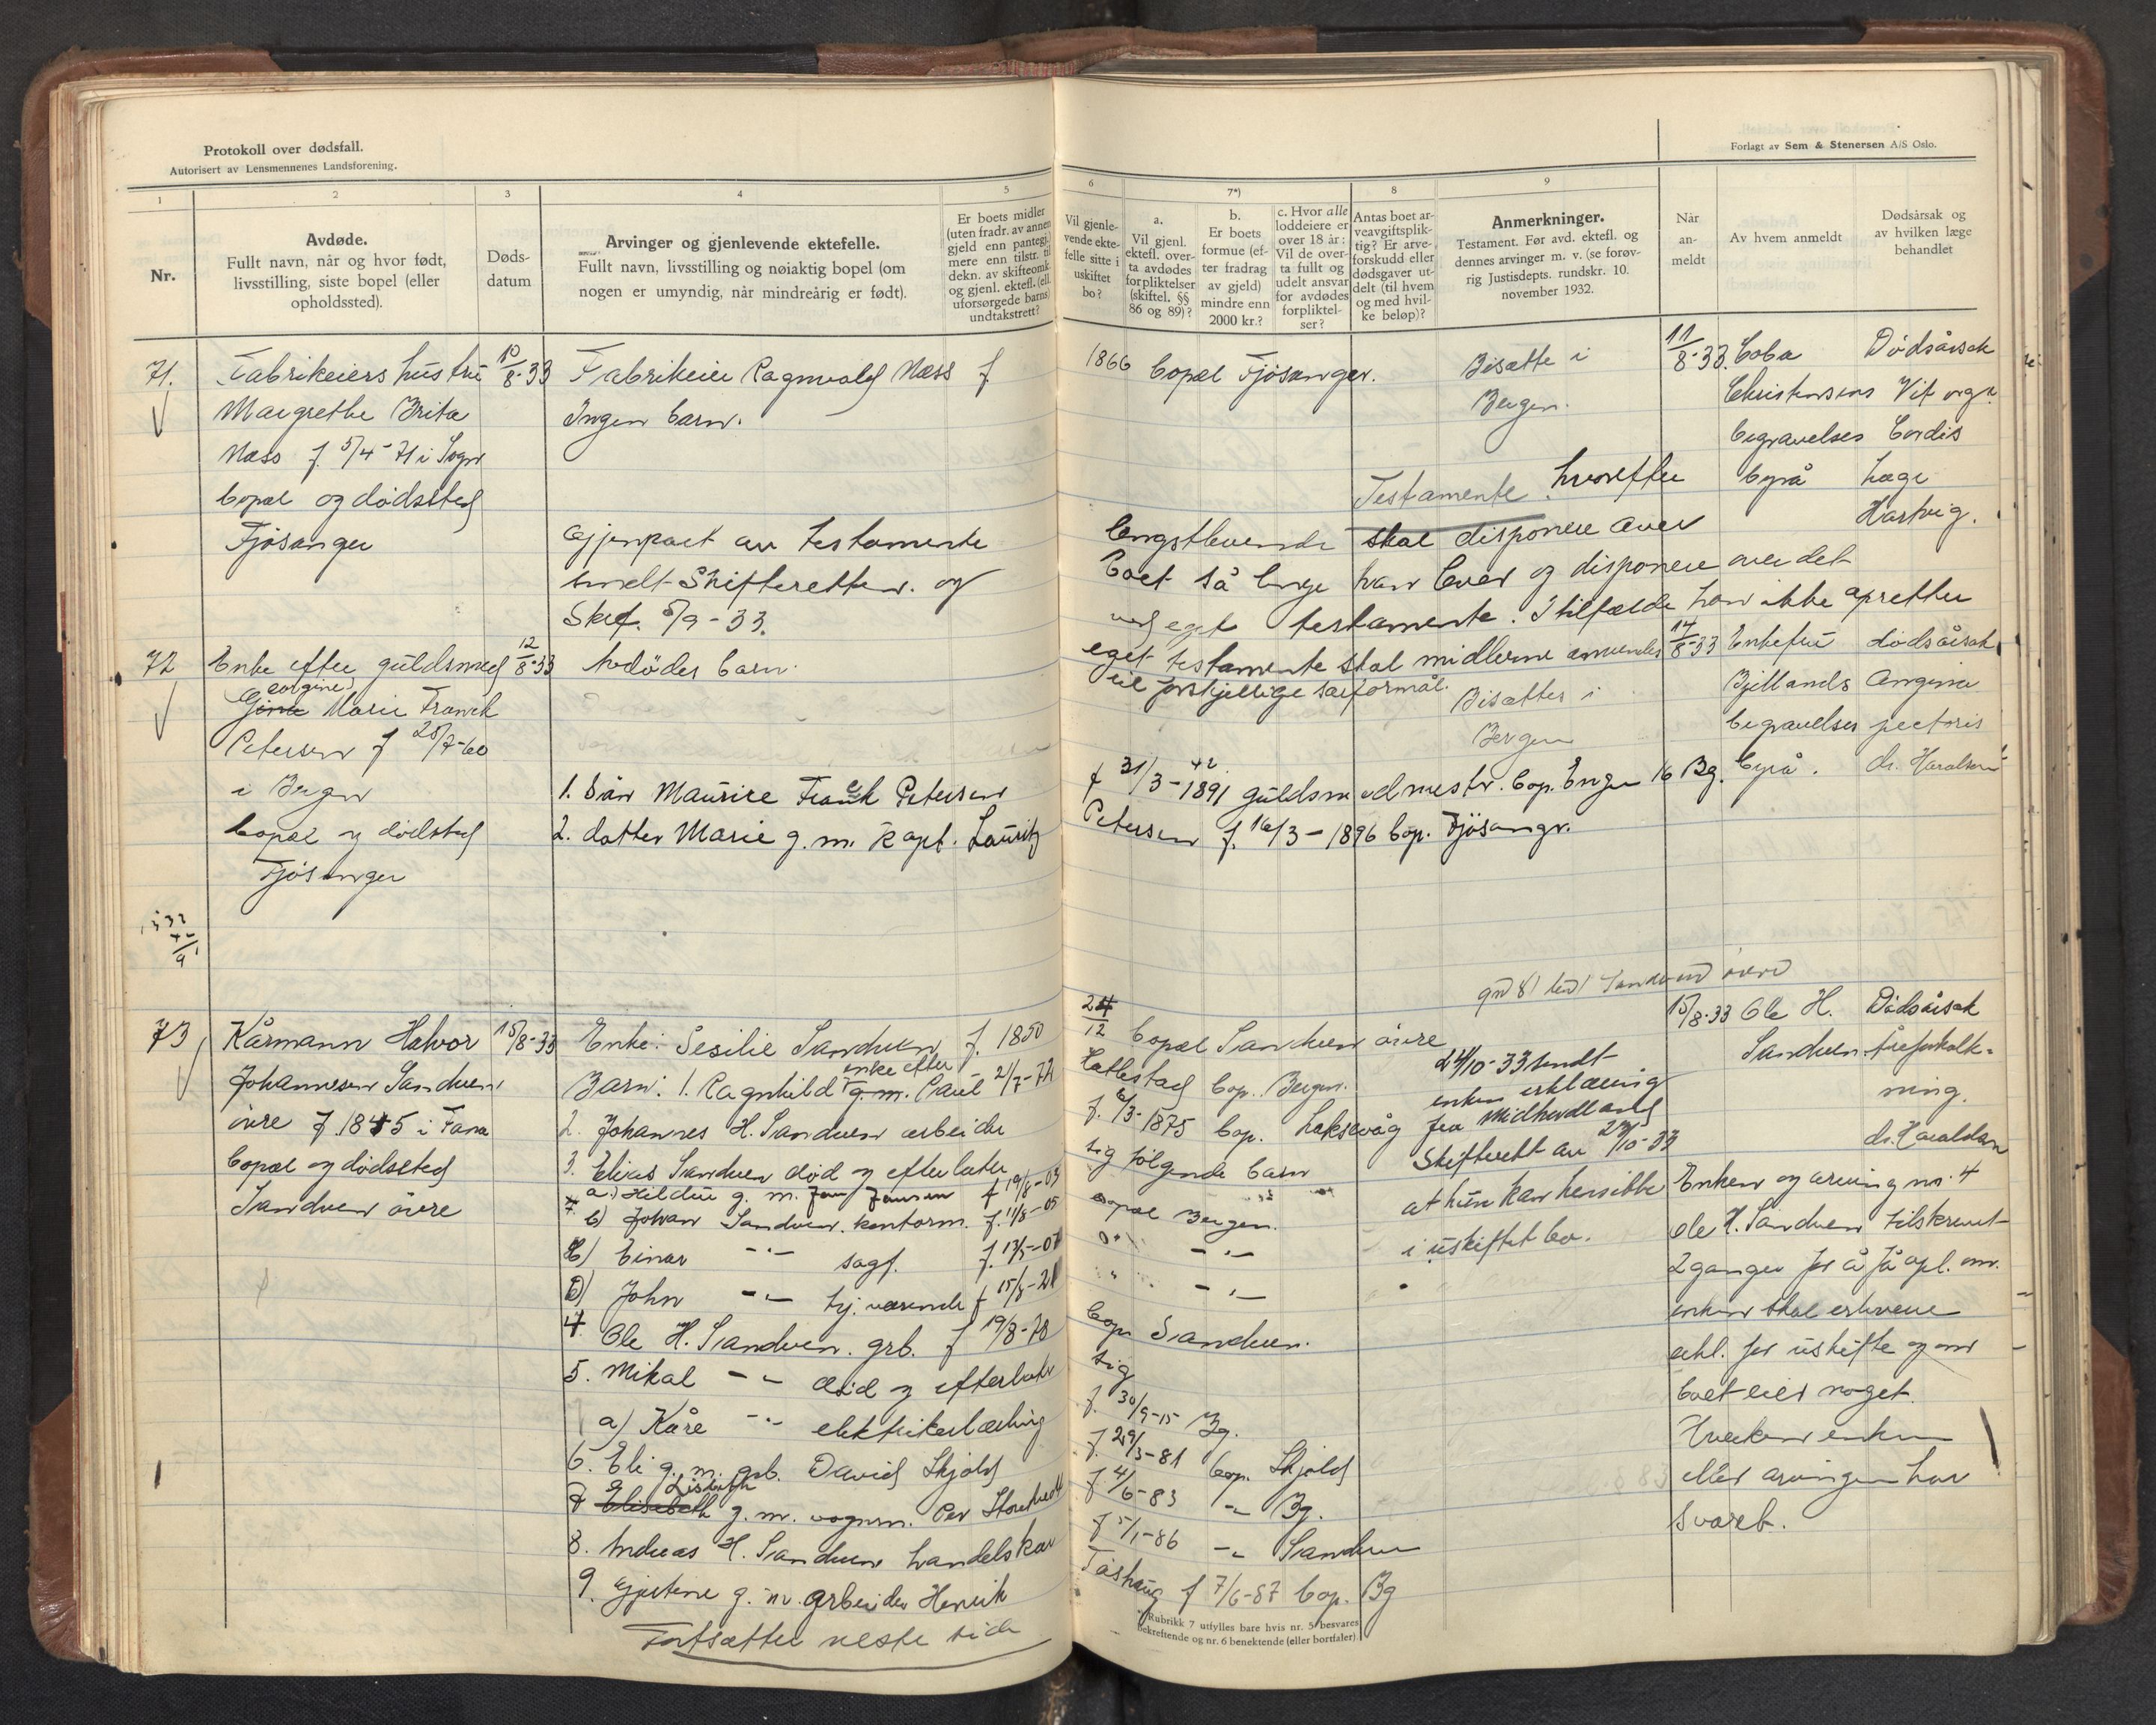 Protokoll over dødsfall.
Autorisert av Lensmennenes Landsforening.
Forlagt av Sem & Stenersen A/S Oslo.
1
2
3
4
5
6
7*)
8
9
Nr.
Avdøde.
Fullt navn, når og hvor født,
livsstilling, siste bopel (eller
opholdssted).
Døds-
datum
Arvinger og gjenlevende ektefelle.
Fullt navn, livsstilling og nøiaktig bopel (om
nogen er umyndig, når mindreårig er født).
Er boets midler
(uten fradr. av annen
gjeld enn pantegj.)
mere enn tilstr. til
dekn. av skifteomk.
og gjenl. ektef. (ell.
uforsørgede barns)
undtakstrett?
Vil gjenle-
vende ekte-
felle sitte i
uskiftet
bo?
a.
Vil gjenl.
ektefl. over-
ta avdødes
forpliktelser
(skiftel. §§
86 og 89)?
b.
Er boets
formue (ef-
ter fradrag
av gjeld)
mindre enn
2000 kr.?
c. Hvor alle
loddeiere er
over 18 år:
Vil de over-
ta fullt og
udelt ansvar
for avdødes
forpliktel-
ser?
Antas boet ar-
veavgiftsplik-
tig? Er arve-
forskudd eller
dødsgaver ut-
delt (til hvem
og med hvil-
ke beløp)?
Anmerkninger.
Testament. Før avd. ektefl. og
dennes arvinger m. v. (se forøv-
rig Justisdepts. rundskr. 10.
november 1932.
Når
an-
meldt
Av hvem anmeldt
Dødsårsak og
av hvilken læge
behandlet
71.
Fabrikeiers hustru
Margrethe Brita
Næss f. 5/4-71 i Sogn
bopæl og dødssted
Fjøsanger
10/8-33
Fabrikeier Ragnvald Næss f
Ingen barn.
Gjenpart av testamente
sendt Skifteretten. og
Skrf. 5/9-33.
1866 bopæl Fjøsanger.
Bisatte i
Bergen.
Testamente hvorefter
længstlevende skal disponere over
boet så længe han lever og disponere over det
ved eget testamente. I tilfælde han ikke opretter
eget testamente skal midlerne anvendes
til forskjellige særformål.
11/8-33.
Coba
Christensens
begravelses
byrå
Dødsårsak
Vit. org.
Cordis
Læge
Hartvig.
72
Enke efter guldsmed
Georgine
Gina Marie Franck
Petersen f 25/7-60
i Bergen
bopæl og dødsted
Fjøsanger
12/8-33
Avdødes barn.
1. Søn Maurice Franck Petersen
2. datter Marie g. m. kapt. Lauritz
f 31/3-1891 guldsmedmestr. bop. Engen 16 Bg.
Petersen f. 16/3-1896 bop. Fjøsangr.
Bisættes i
Bergen
14/8-33
Enkefru
Bjellands
begravelses
byrå.
dødsårsak
Angina
pectoris
dr. Haralsen
73
Kårmann Halvor
Johannesen Sandven
øvre f. 1845 i Fana
bopæl og dødssted
Sandven øvre
15/8-33
Enke: Sesilie Sandven f. 1850
enke efter
Barn: 1. Ragnhild g. m. Paul 21/7-72
2. Johannes H. Sandven arbeider
3. Elias Sandven død og efterlater
a.) Hildur g. m. Jansen f 19/8-03
b) Johan Sandven. kontorm. f. 11/8-05
c) Einar -"- sagf. f. 13/5-07
d) John -"- tj. værende f 15/3-21
4 Ole H. Sandven. grb. f 19/8-78
5. Mikal -"- død og efterlater
a) Kåre -"- elektrikerlærling
6. Eli g. m. grb. David Skjold
Lisbeth
7 Elisabeth g. m. vognm. Per
8. Andreas H. Sandven handelskar
9. Gjertine g. m. arbeider Henrik
Fortsætter neste side
24/12 bopæl Sandven øvre
Hatlestad bop. Bergen.
f. 6/3-1875 bop. Laksevåg
sig følgende barn
bopæl Bergen.
-"-
-"-
bop Sandven.
sig
f. 30/9-15 Bg.
f. 29/3-81 bop. Skjold
f 4/6-83 -"- Bg.
f 5/1-86 -"- Sandven
f 7/6-87 bop. Bg
24/10-33 sendt
enken erklæring
fra Midhordland
Skifterett av 23/10-33
at hun kan hensitte
i uskiftet bo.
15/8-33
Ole H.
Sandven.
Dødsårsak
åreforkalk-
ning.
dr. Haraldsen
Enken og arving no. 4
Ole H. Sandven tilskrevet
2 ganger for å få opl. om
enken skal erhverve
erkl. for uskifte og om
boet eier noget.
Hverken enken
eller arvingen har
svaret.
*) Rubrikk 7 utfylles bare hvis nr. 5 besvares
bekreftende og nr. 6 benektende (eller bortfaler).